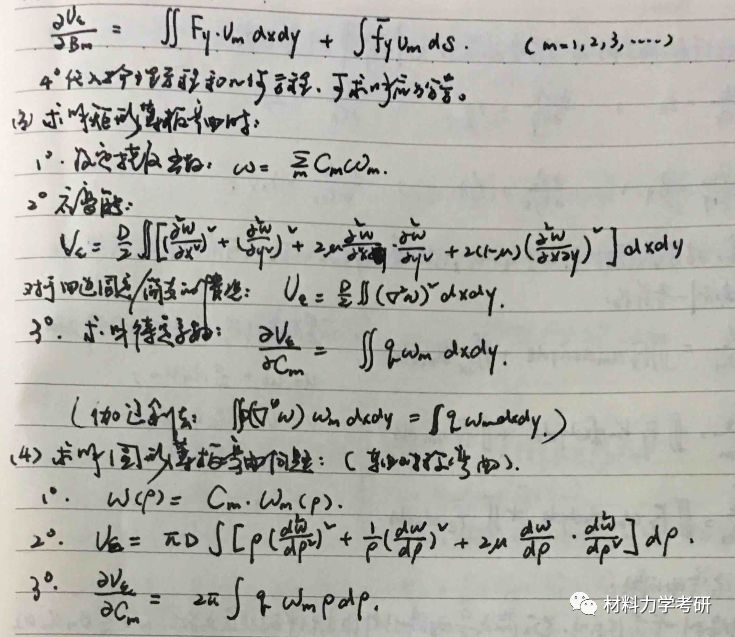 ∂Vε/∂Bm = ∬ Fy·Vm dxdy + ∫ f̄y Vm ds. (m=1,2,3,……)
4° 代入
(3) 求解矩形薄板弯曲时:
1°. 设定挠度函数: ω = Σm Cmωm.
2° 应变能:
Vε = D/2 ∬[(∂²ω/∂x²)² + (∂²ω/∂y²)² + 2μ ∂²ω/∂x² · ∂²ω/∂y² + 2(1-μ)(∂²ω/∂x∂y)²] dxdy
对于四边固定/简支的 Vε = D/2 ∬(∇²ω)² dxdy.
3°. 求解待定系数: ∂Vε/∂Cm = ∬ qωm dxdy.
(伽辽金法: ∬D(∇⁴ω) ωm dxdy = ∫q ωm dxdy.)
(4) 求解圆形薄板弯曲问题: (轴对称弯曲).
1°. ω(ρ) = Cm·ωm(ρ).
2°. Vε = πD ∫[ρ(d²ω/dρ²)² + 1/ρ(dω/dρ)² + 2μ dω/dρ · d²ω/dρ²] dρ.
3°. ∂Vε/∂Cm = 2π ∫ q ωm ρdρ.
材料力学考研